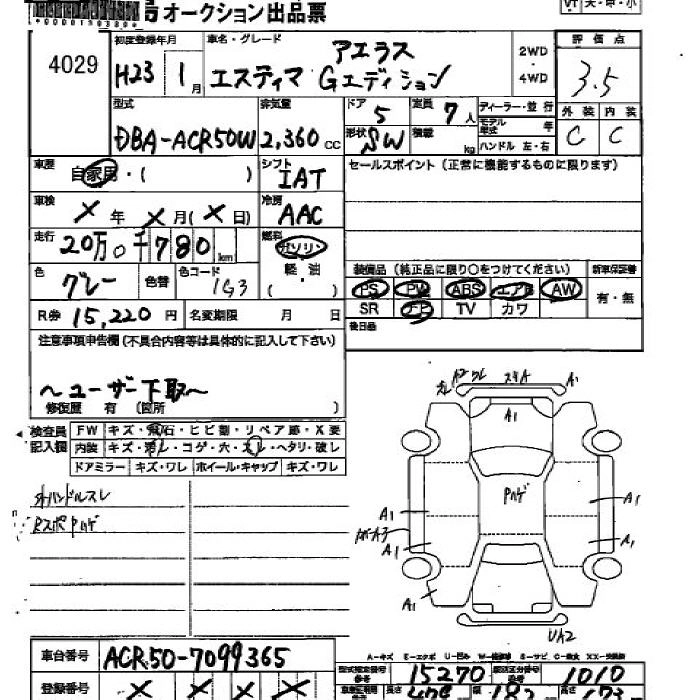 オークション出品票
4029
初度登録年月
H23 1月
車名・グレード
アエラス
エスティマ Gエディション
2WD
・
4WD
評価点
3.5
外装 内装
C C
型式
DBA-ACR50W
排気量
2,360cc
ドア 5
定員 7人
形状 SW
積載 kg
ディーラー・並行
モデル年式 年
ハンドル 左・右
車歴
自家用・( )
シフト
IAT
セールスポイント(正常に機能するものに限ります)
車検
X年 X月(X日)
冷房
AAC
走行
20万0千780km
燃料
ガソリン・
軽・油
( )
色
グレー
色替
色コード
1G3
装備品(純正品に限り○をつけてください)
新車保証書
PS PW ABS エアB AW
有・無
SR ナビ TV カワ
後日品
R券 15,220円
名変期限 月 日
注意事項申告欄(不具合内容等は具体的に記入して下さい)
〜ユーザー下取〜
修復歴 有(箇所 )
検査員
記入欄
FW キズ・飛石・ヒビ割・リペア跡・X要
内装 キズ・汚レ・コゲ・穴・スレ・ヘタリ・破レ
ドアミラー キズ・ワレ ホイール・キャップ キズ・ワレ
ハンドルスレ
A2 ワレ スキA A1
A1
A1
A1
A1
A1
A1
UA2
A-キズ E-エクボ U-凹ミ
車台番号
ACR50-7099365
型式指定番号
15270
類別区分番号
1010
登録番号
X X X X
長さ 幅 高さ